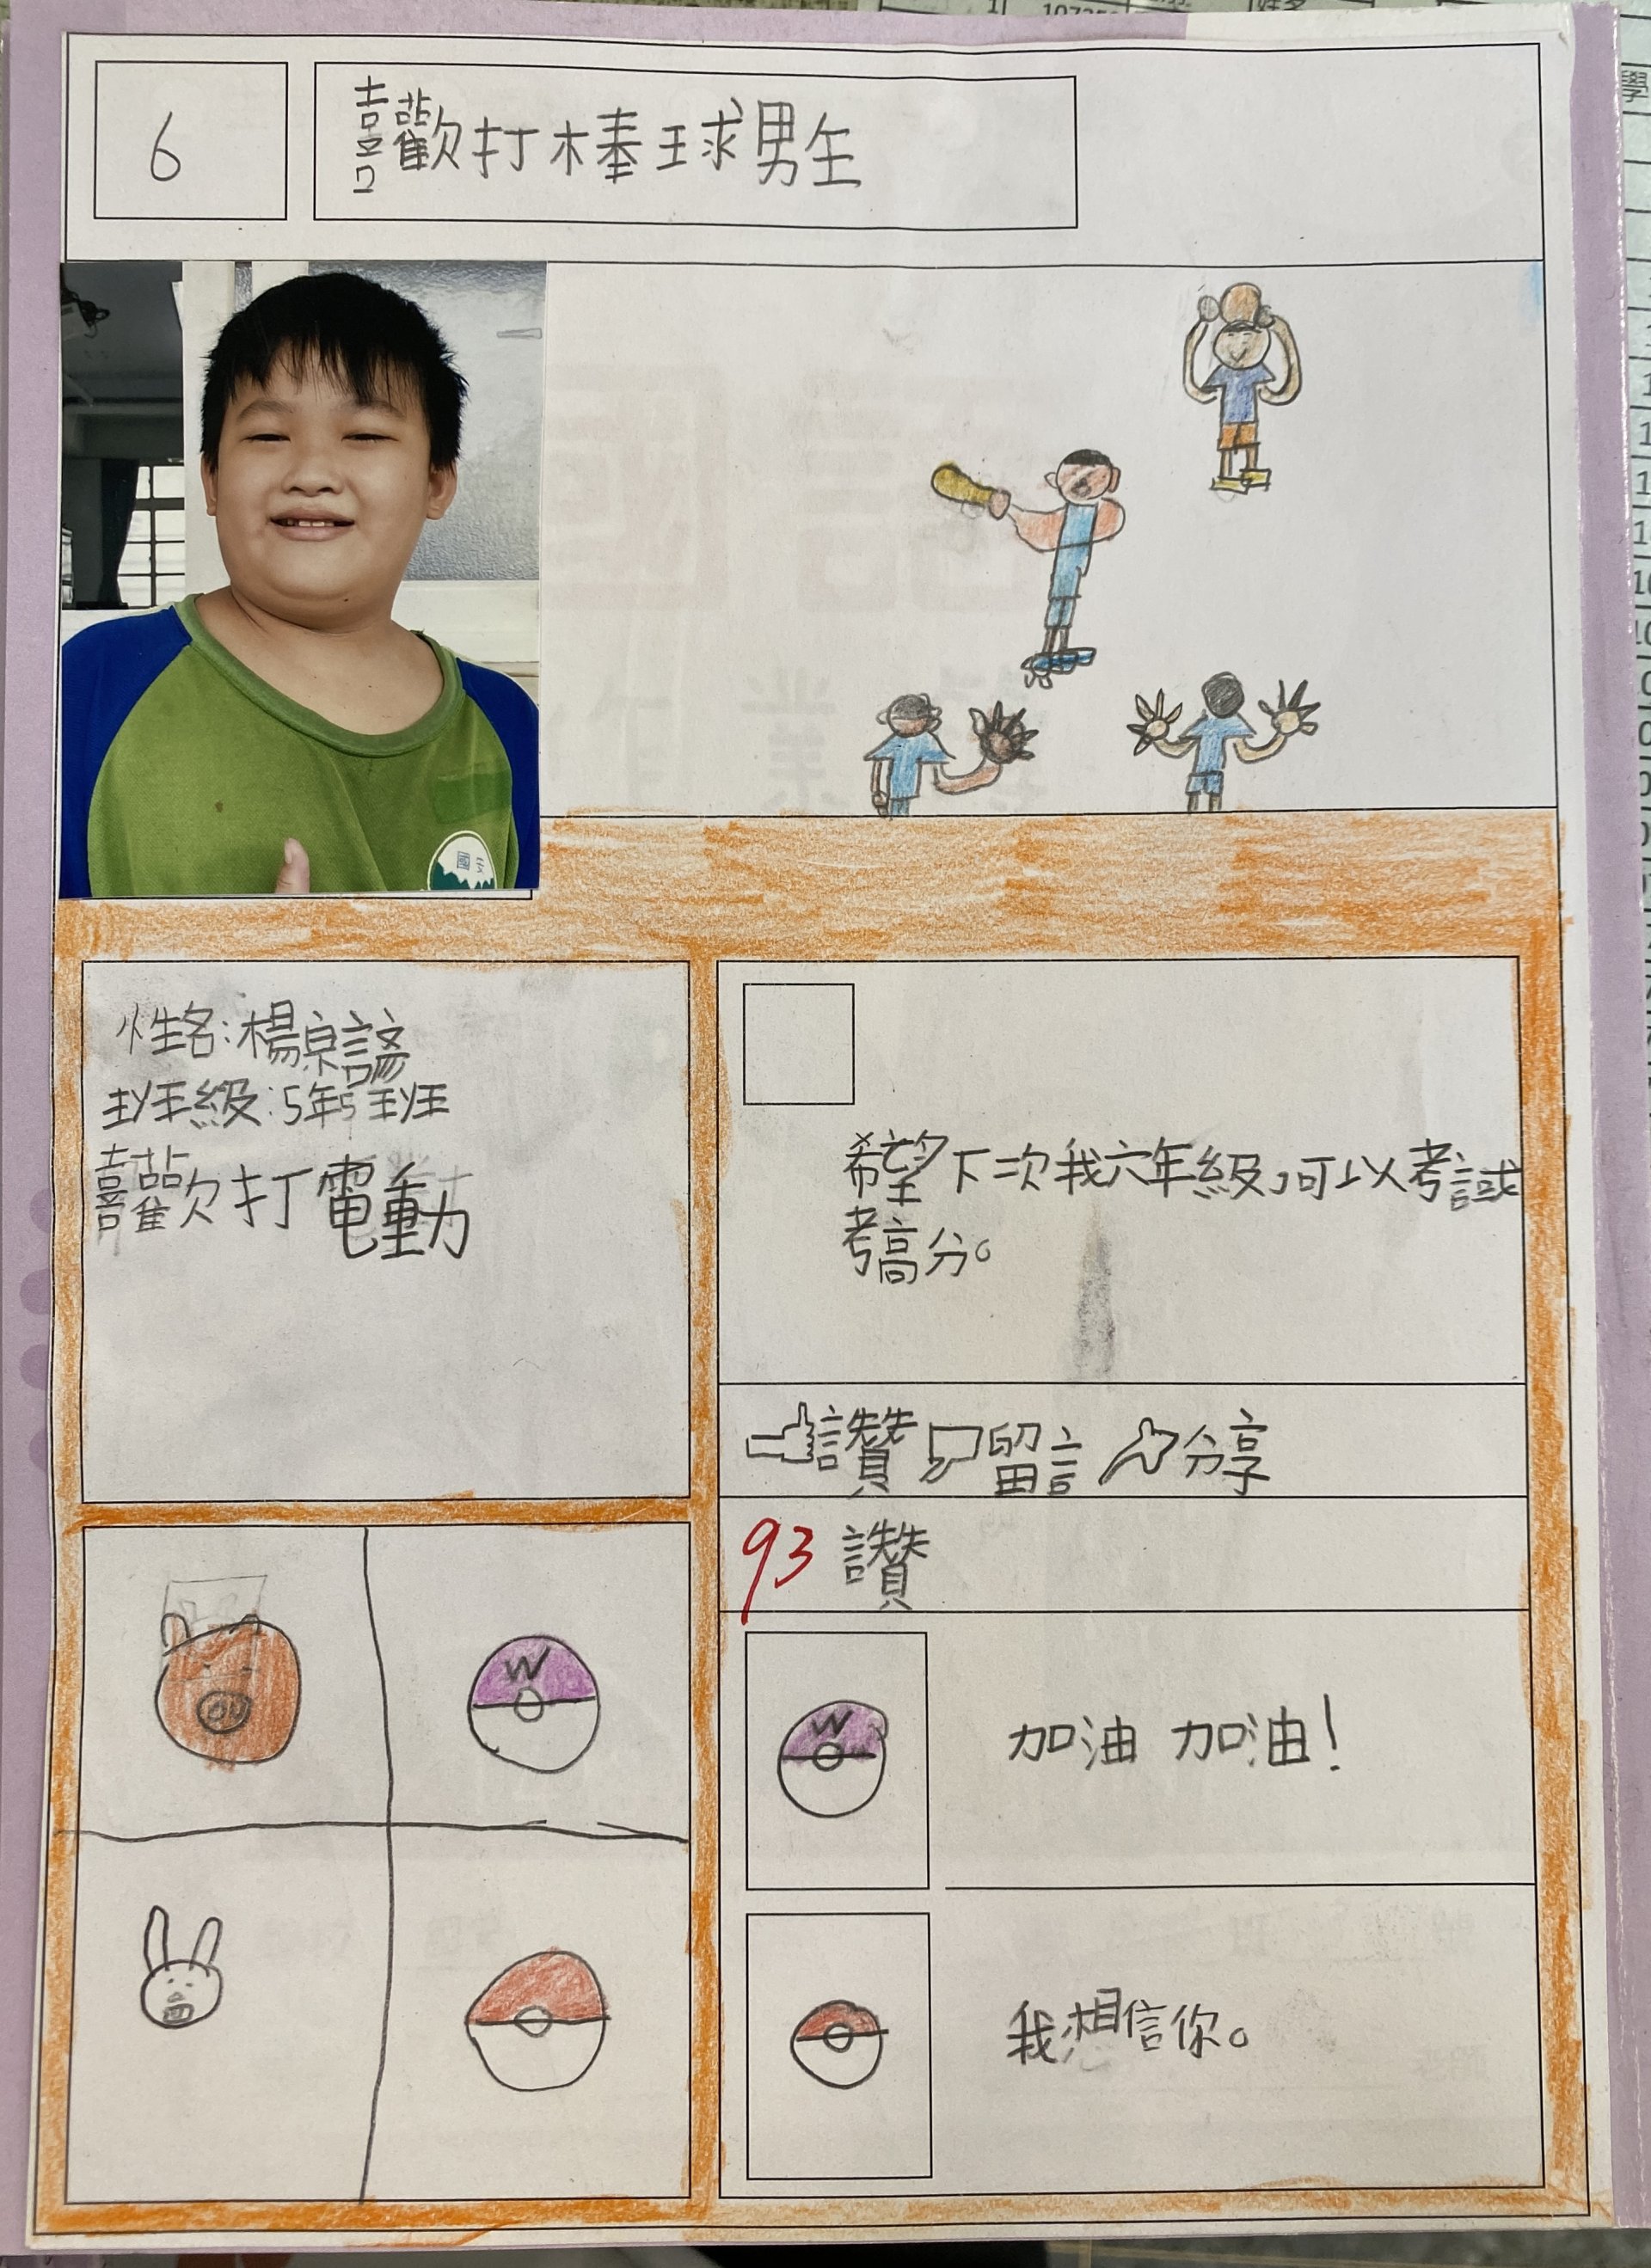 6
喜歡打棒球男生
性名:楊京諺
班級:5年5班
喜歡打電動
希望下次我六年級,可以考試
考高分。
讚 留言 分享
93 讚
W
W
加油 加油!
我想相信你。